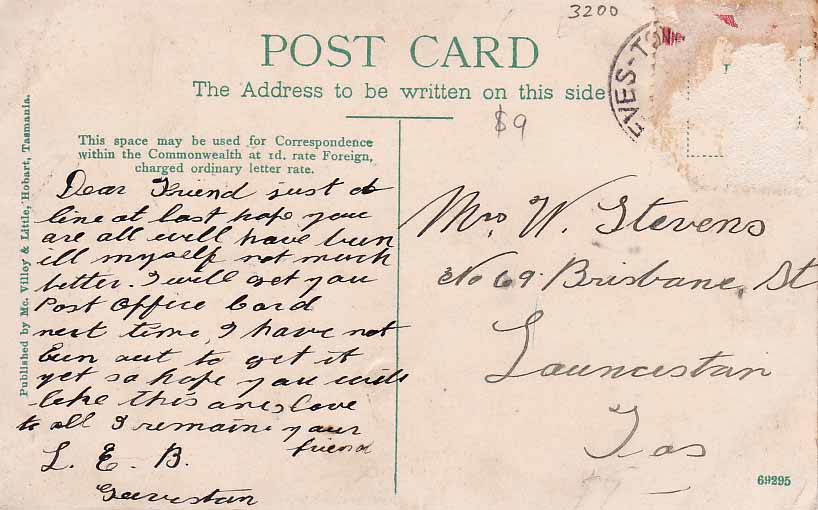 3200
POST CARD
The Address to be written on this side
$9
EVES-TO
This space may be used for Correspondence
within the Commonwealth at 1d. rate Foreign,
charged ordinary letter rate.
Dear Friend just a
line at last hope you
are all well have bun
ill myself not much
better. I will get you
Post Office Card
next time, I have not
bun out to get it
yet so hope you will
like this one, love
to all I remain your
friend
L. E. B.
Geeveston
Mrs, W. Stevens
No 69. Brisbane, St
Launceston
Tas
Published by Mc. Villoy & Little, Hobart, Tasmania.
69295